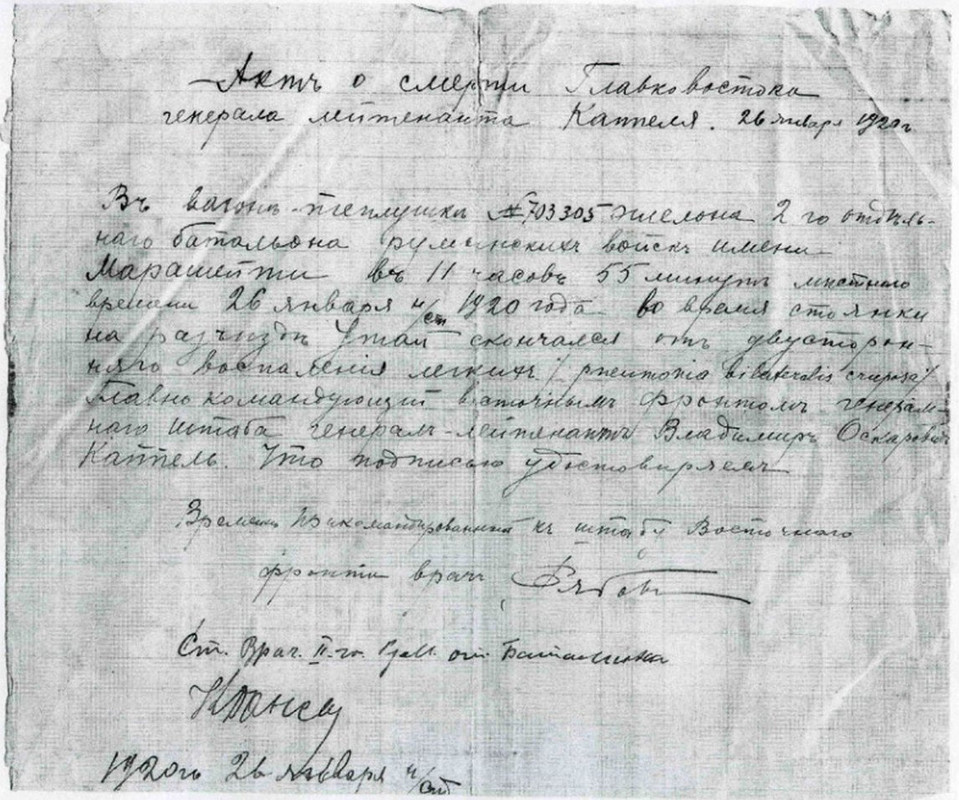 Актъ о смерти Главковостока
генерала лейтенанта Каппеля. 26 января 1920 г
Въ вагонѣ-теплушкѣ № 703305 эшелона 2 го отдѣль-
наго батальона румынскихъ войскъ имени
Марашейти въ 11 часовъ 55 минутъ мѣстнаго
времени 26 января н/ст 1920 года во время стоянки
на разъѣздѣ Утай скончался отъ двусторон-
няго воспаления легкихъ /pneumonia bilateralis crouposa/
Главнокомандующий восточнымъ фронтомъ генераль-
наго штаба генералъ-лейтенантъ Владимиръ Оскаровичъ
Каппель. Что подписью удостовѣряемъ
Времен. Прикомандированный къ штабу Восточного
фронта врачъ
Ст. Врач. II-го Рум. от. Батальона
1920 г. 26 января н/ст